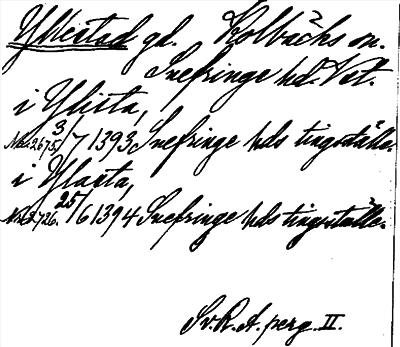 Yllestad gd. Kolbäcks sn.
Snefringe hd. Vstl.
i Ylista,
No 2675. 3/7 1393. Snefringe hds tingsställe.
i Ylasta,
No 2726. 25/6 1394 Snefringe hds tingställe.
Sv. R. A. perg. II.